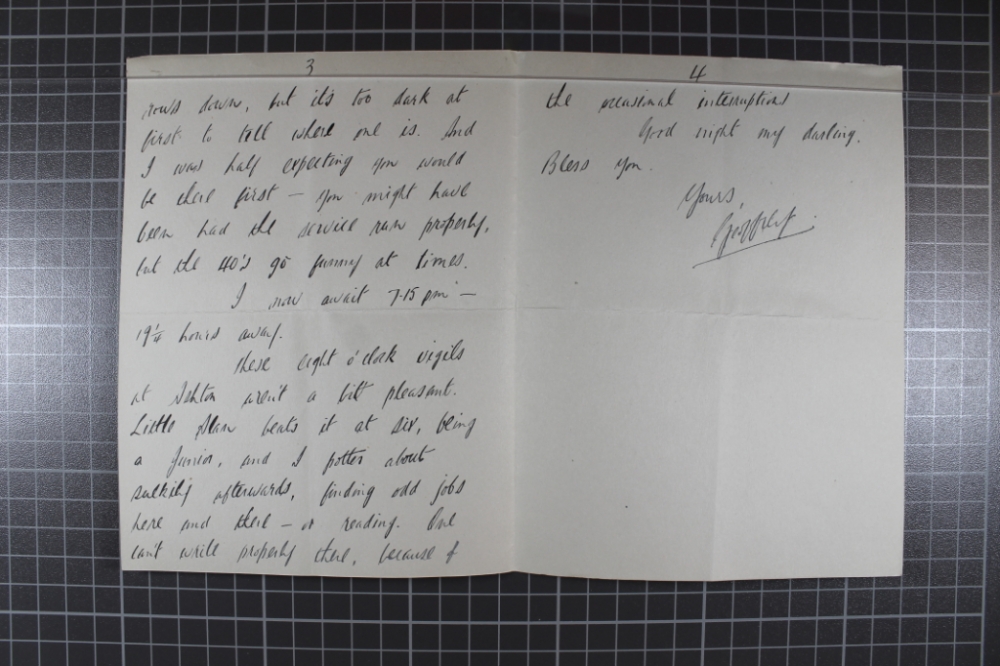 3
rows down, but it's too dark at
first to tell where one is. And
I was half expecting you would
be there first — you might have
been had the service run properly,
but the 40's go funny at times.
I now await 7.15 pm —
19¼ hours away.
These eight o'clock vigils
at Ashton aren't a bit pleasant.
Little Stan beats it at six, being
a Junior, and I potter about
sulkily afterwards, finding odd jobs
here and there — or reading. One
can't write properly there, because of
4
the occasional interruptions
Good night my darling.
Bless you.
Yours,
Geoffrey.